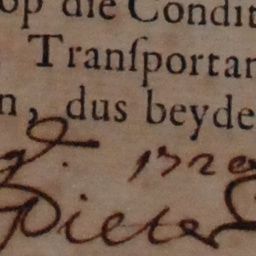 op die Condit
Tranſportan
n, dus beyde
1720
Pieter